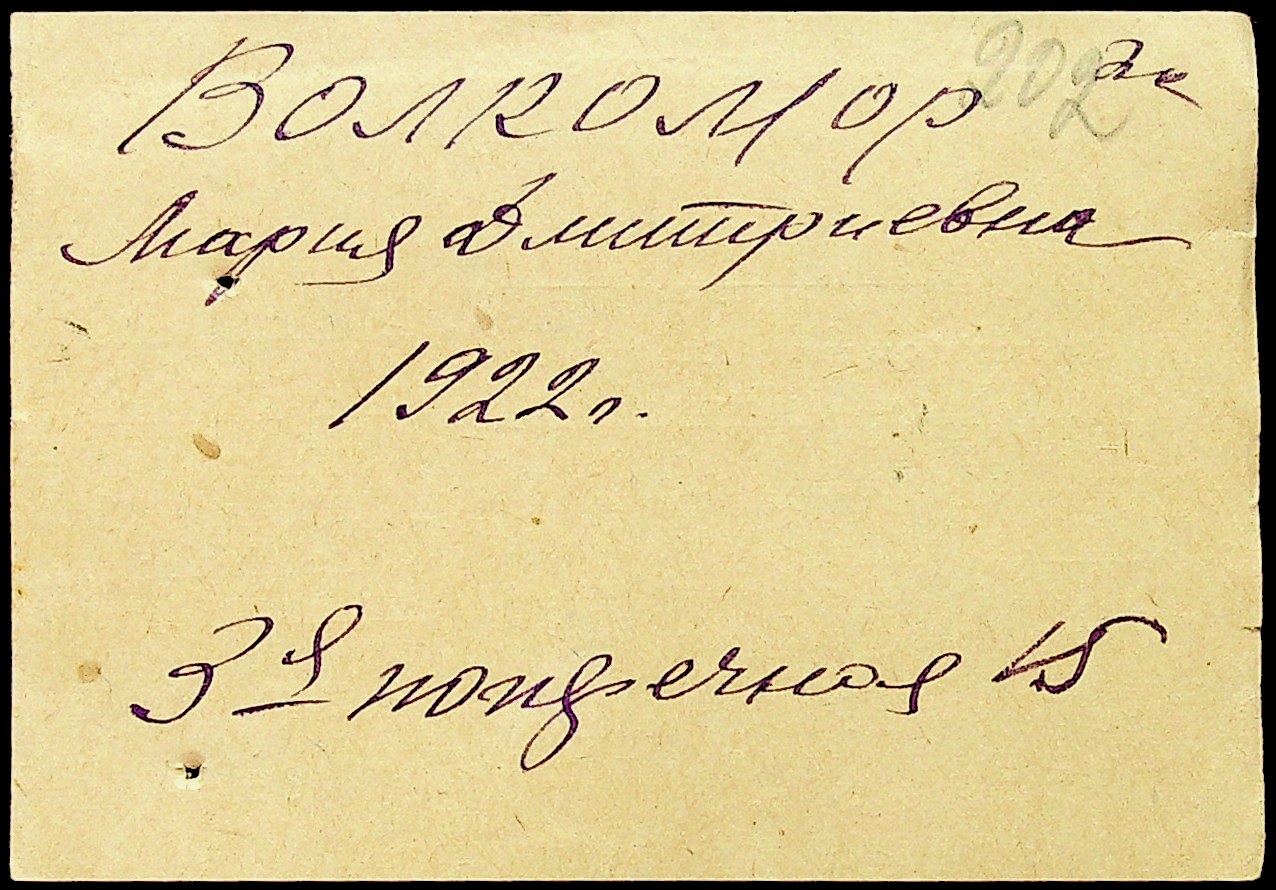 Волкомор 202
Мария Дмитриевна
1922 г.
3я поперечная 15